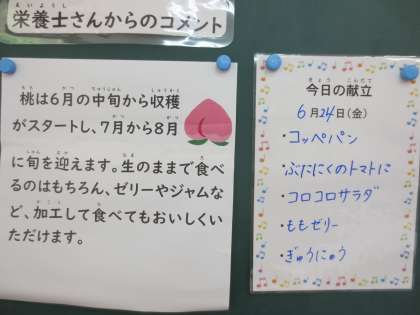 栄養士さんからのコメント
桃は6月の中旬から収穫
がスタートし、7月から8月
に旬を迎えます。生のままで食べ
るのはもちろん、ゼリーやジャムな
ど、加工して食べてもおいしくい
ただけます。
今日の献立
6月24日(金)
・コッペパン
・ぶたにくのトマトに
・コロコロサラダ
・ももゼリー
・ぎゅうにゅう